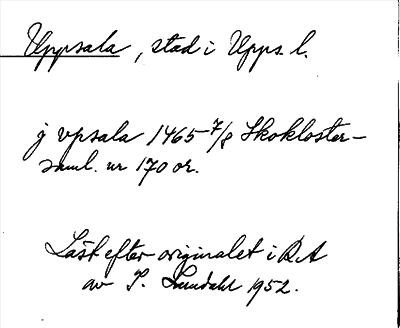 Uppsala, stad i Upps. l.
j vpsala 1465 7/8 Skokloster-
saml. nr 170 or.
Läst efter originalet i RA
av I. Lundahl 1952.